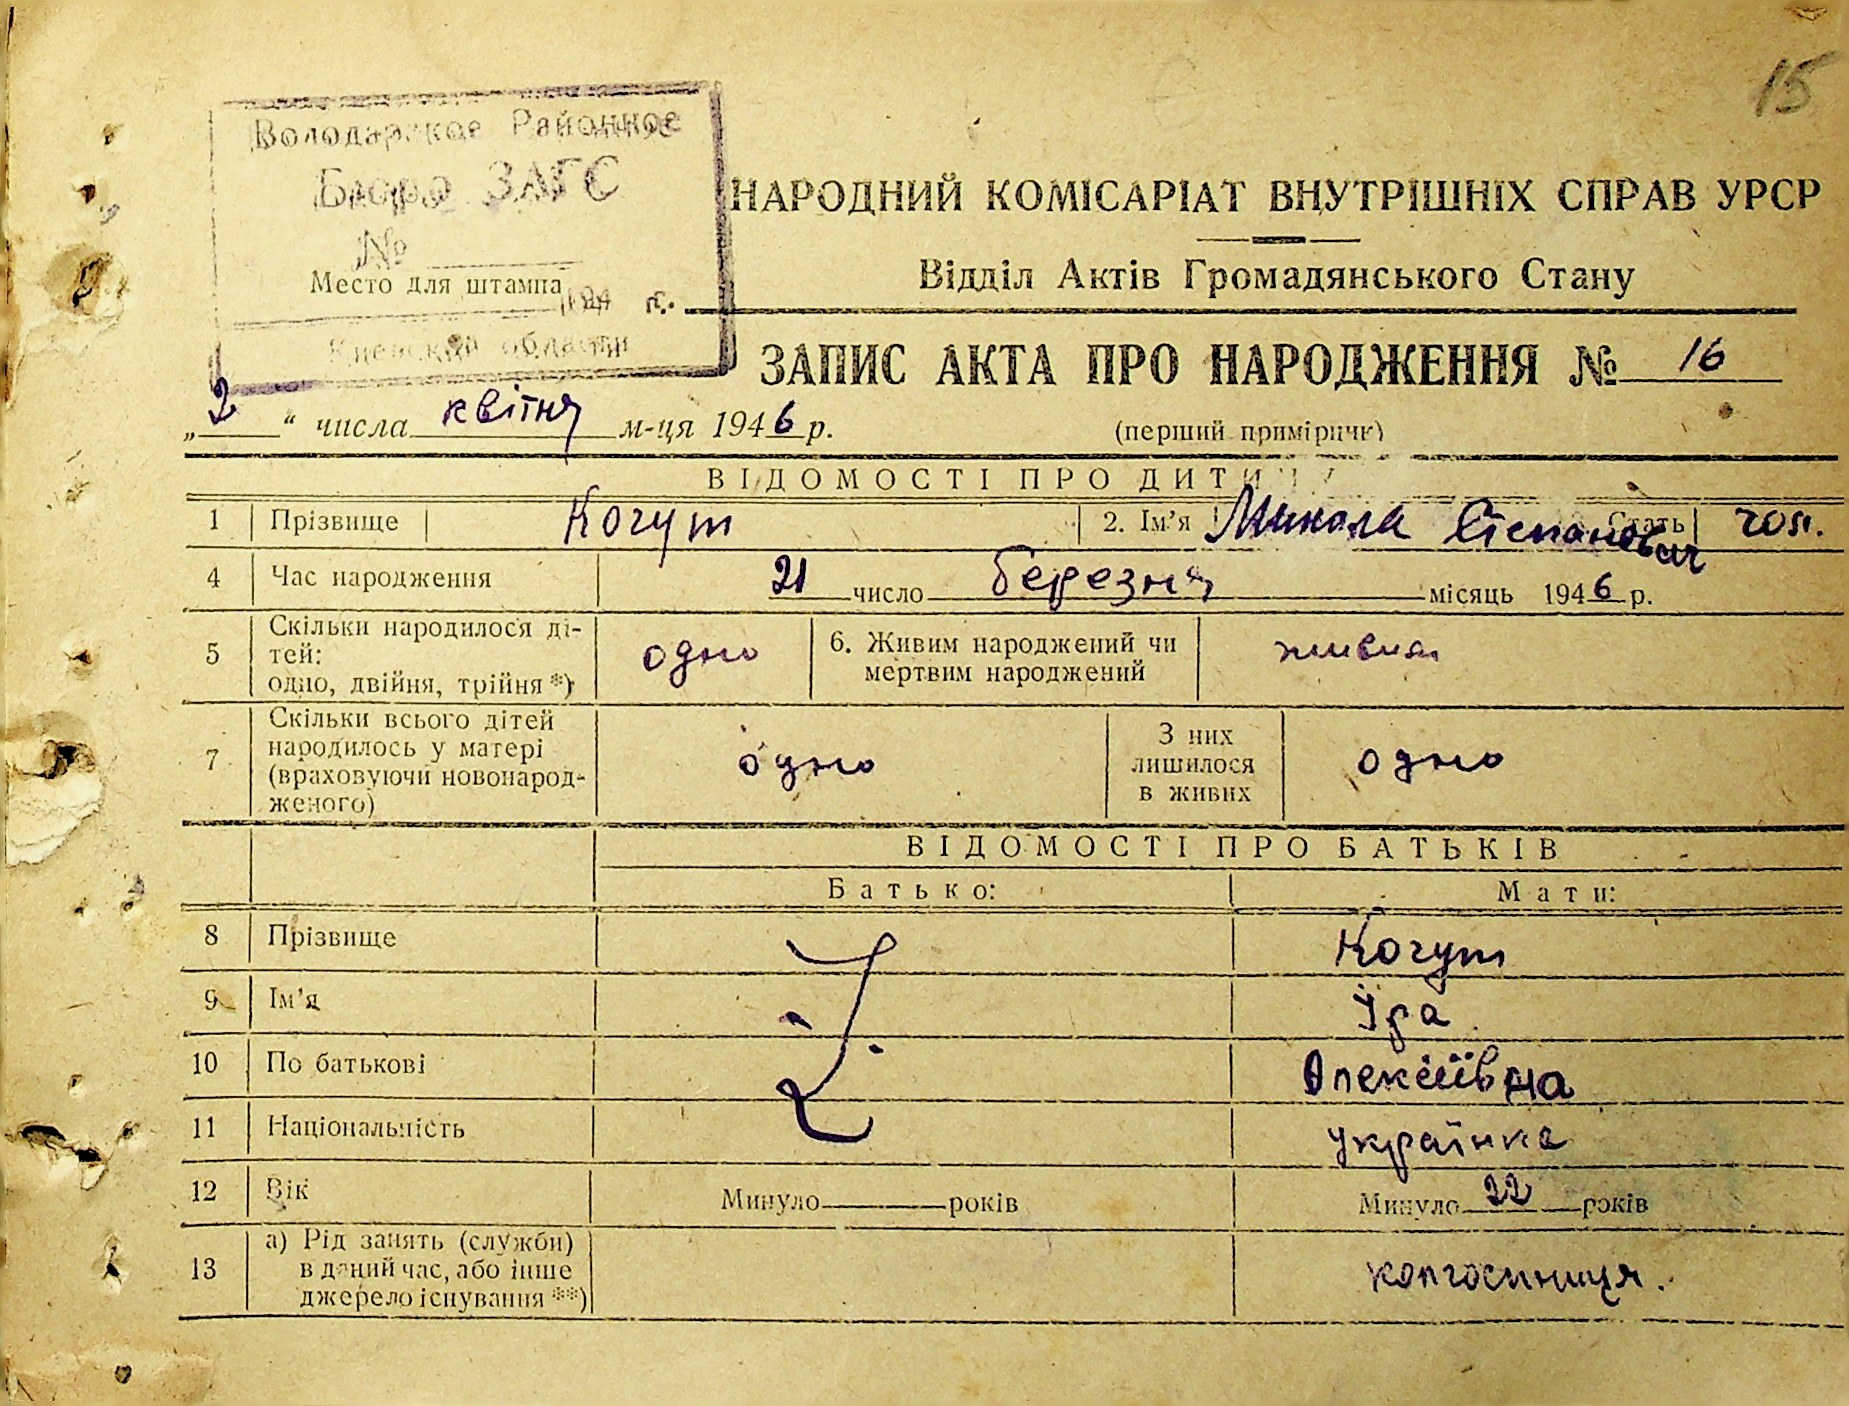 15
Володарское Районное
Бюро ЗАГС
№
Место для штампа
194 г.
Киевской области
НАРОДНИЙ КОМІСАРІАТ ВНУТРІШНІХ СПРАВ УРСР
Відділ Актів Громадянського Стану
ЗАПИС АКТА ПРО НАРОДЖЕННЯ № 16
„2“ числа квітня м-ця 1946 р.
(перший примірник)
ВІДОМОСТІ ПРО ДИТИНУ
1 Прізвище Когут 2. Ім'я Микола Степанович Стать чол.
4 Час народження 21 число березня місяць 1946 р.
5 Скільки народилося ді-
тей:
одно, двійня, трійня *)
одно
6. Живим народжений чи
мертвим народжений
живим
7 Скільки всього дітей
народилось у матері
(враховуючи новонарод-
женого)
одно
З них
лишилося
в живих
одно
ВІДОМОСТІ ПРО БАТЬКІВ
Батько: Мати:
8 Прізвище Когут
9 Ім'я Їда
10 По батькові Олексіївна
11 Національність українка
12 Вік Минуло років Минуло 22 років
13 а) Рід занять (служби)
в даний час, або інше
джерело існування **)
колгоспниця.